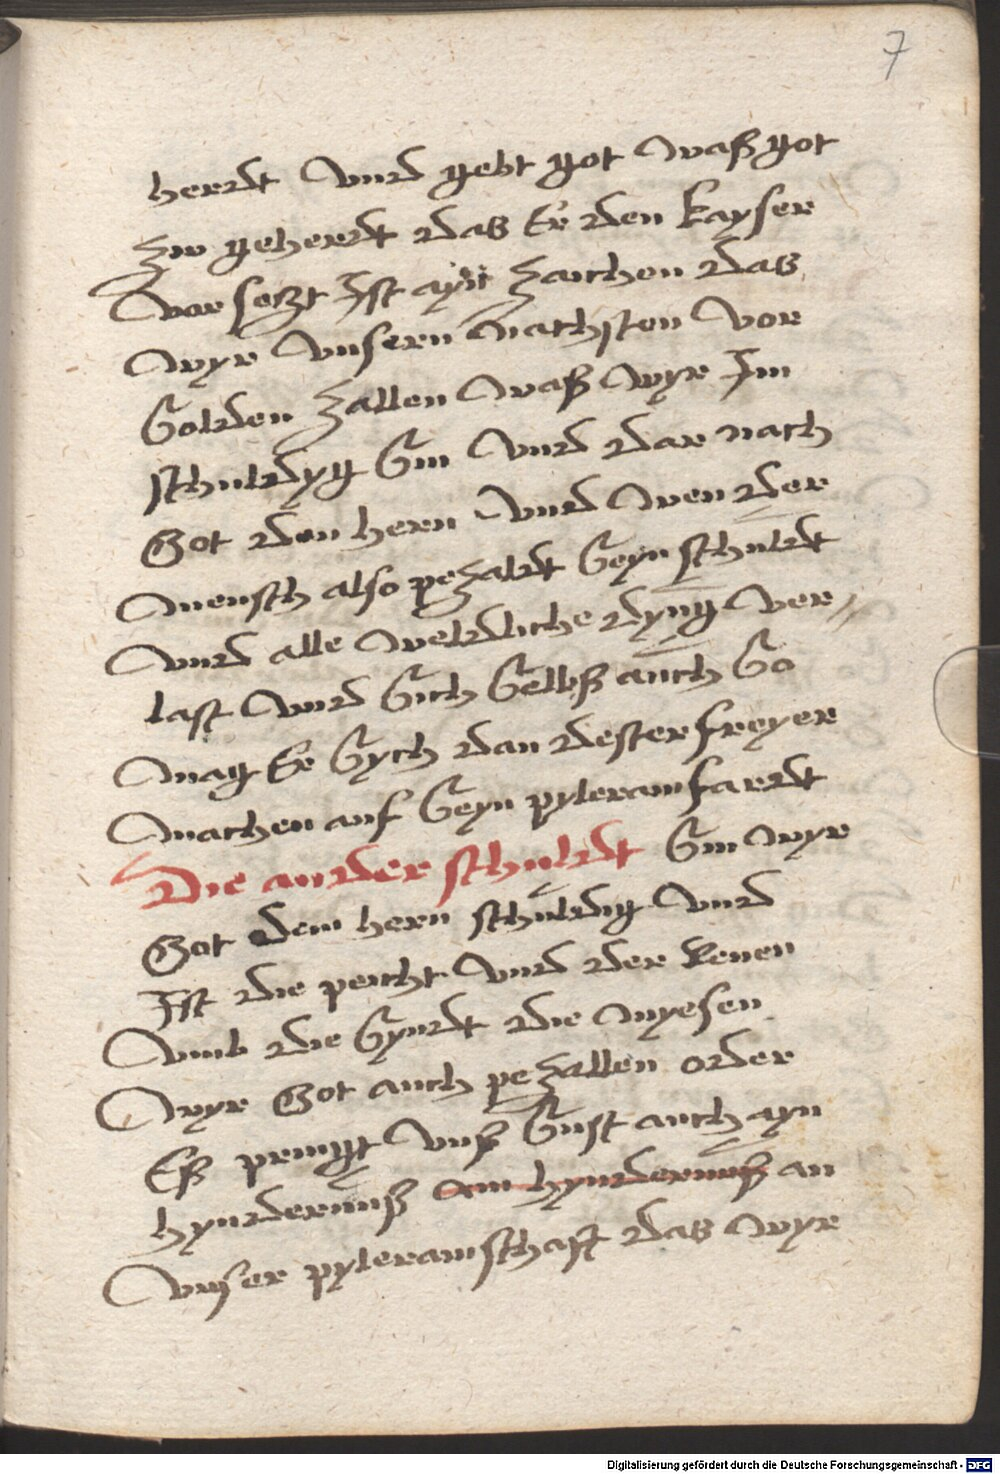 7
herdt Vnd gebt got waß got
zw geherdt das Er den kayser
vor setzt Ist ayn zaichen das
wyr Vnsern nachsten Vor
Solden zallen waß wyr Im
schuldyg Sin Vnd dar nach
Got den hern Vnd wen der
mensch also pezaldt Seyn schuldt
Vnd alle weldliche dyng Ver-
last Vnd Sich Selbß auch So
mag Er Sych dan dester freyer
machen auf Seyn pylgramfardt
Die ander schuldt Sin wyr
Got dem hern schuldig Vnd
Ist die peicht Vnd der Reuen
Vmb die Syndt die myesen
wyr Got auch pezallen oder
Eß pringt Vnß Sust auch ayn
hynderniß an
Vnser pylgramschaft das wyr
Digitalisierung gefördert durch die Deutsche Forschungsgemeinschaft - DFG